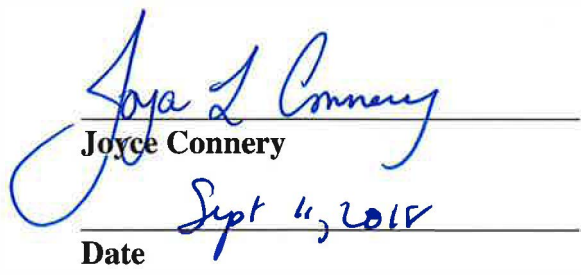 Joyce L Connery
Joyce Connery
Sept 11, 2018
Date